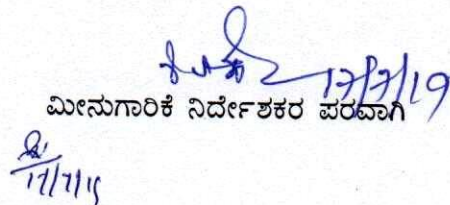 17/7/19
ಮೀನುಗಾರಿಕೆ ನಿರ್ದೇಶಕರ ಪರವಾಗಿ